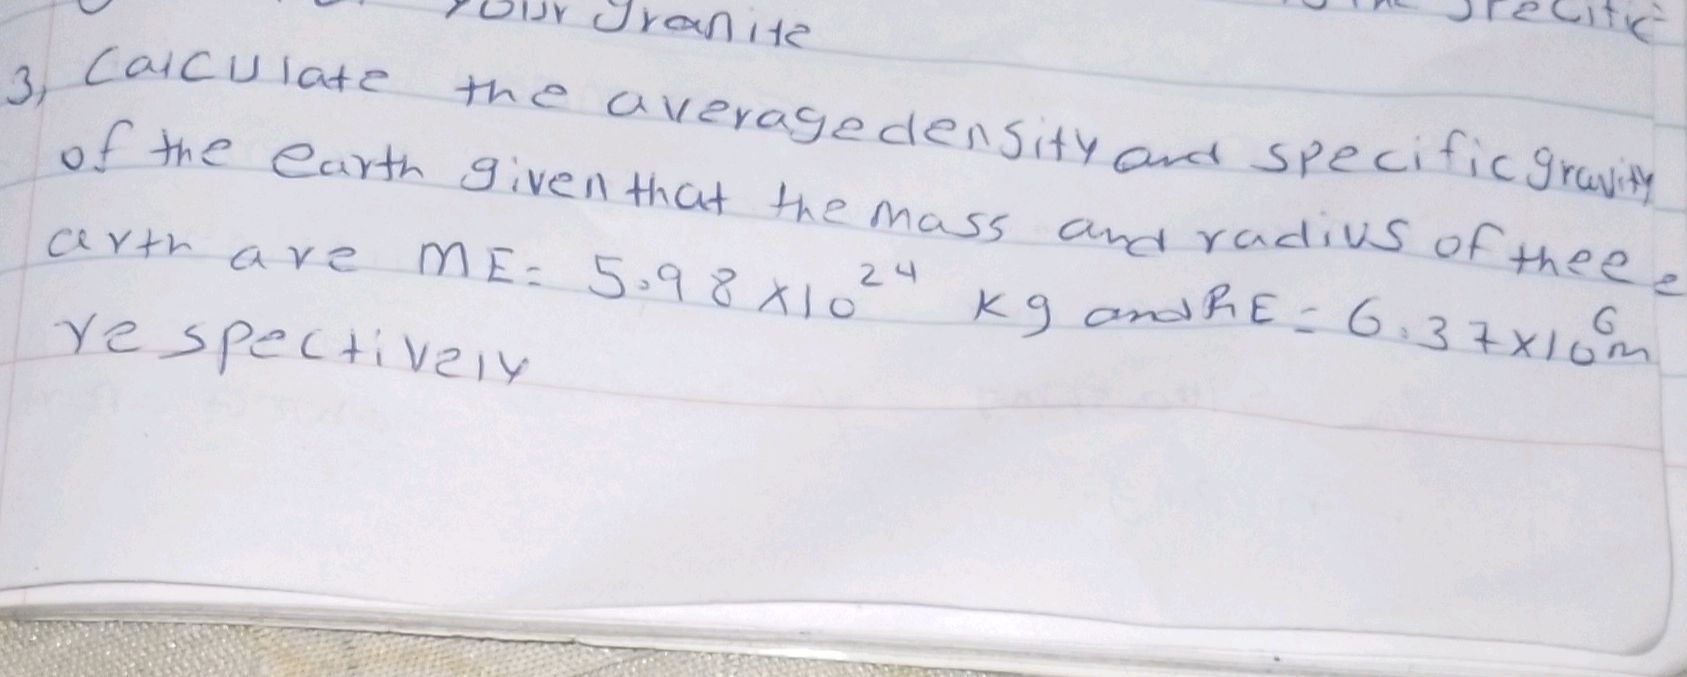 your granite
3, Calculate the average density and specific gravity
of the earth given that the mass and radius of the e
arth are ME = 5.98 x10²⁴ kg and RE = 6.37x10⁶m
respectively